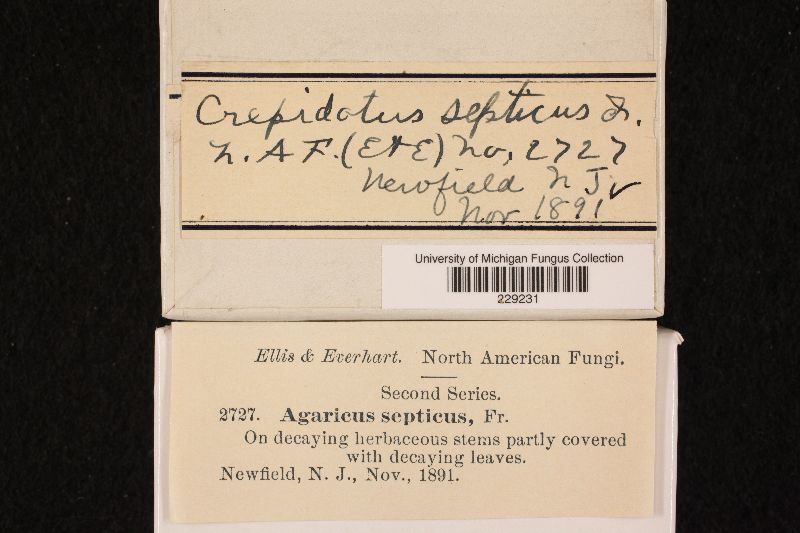 Crepidotus septicus Fr.
N. A F. (E & E) No, 2727
Newfield N J
Nov 1891
University of Michigan Fungus Collection
229231
Ellis & Everhart. North American Fungi.
Second Series.
2727. Agaricus septicus, Fr.
On decaying herbaceous stems partly covered
with decaying leaves.
Newfield, N. J., Nov., 1891.